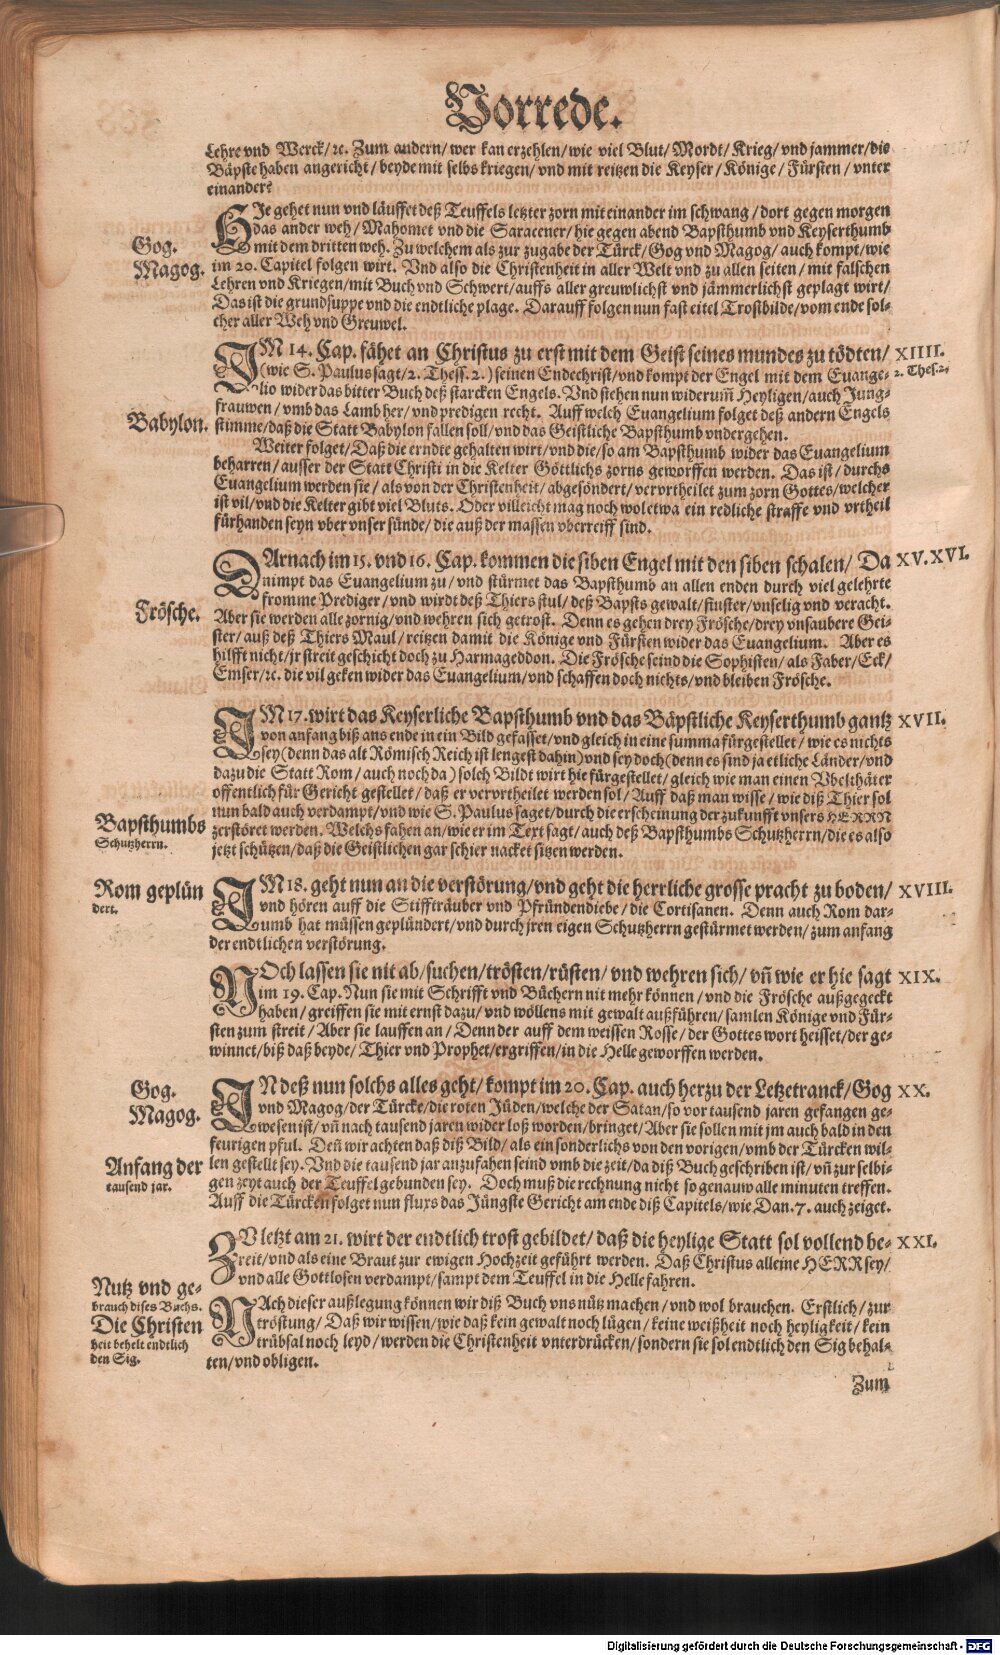 Vorrede.
Lehre vnd Werck/ ꝛc. Zum andern/ wer kan erzehlen/ wie viel Blut/ Mordt/ Krieg/ vnd jammer/ die
Bäpste haben angericht/ beyde mit selbs kriegen/ vnd mit reitzen die Keyser/ Könige/ Fürsten/ vnter
einander?
HIe gehet nun vnd läuffet deß Teuffels letzter zorn mit einander im schwang/ dort gegen morgen
das ander weh/ Mahomet vnd die Saracener/ hie gegen abend Bapsthumb vnd Keyserthumb
Gog.
Magog.
mit dem dritten weh. Zu welchem als zur zugabe der Türck/ Gog vnd Magog/ auch kompt/ wie
im 20. Capitel folgen wirt. Vnd also die Christenheit in aller Welt vnd zu allen seiten/ mit falschen
Lehren vnd Kriegen/ mit Buch vnd Schwert/ auffs aller greuwlichst vnd jämmerlichst geplagt wirt/
Das ist die grundsuppe vnd die endtliche plage. Darauff folgen nun fast eitel Trostbilde/ vom ende sol-
cher aller Weh vnd Greuwel.
IM 14. Cap. fähet an Christus zu erst mit dem Geist seines mundes zu tödten/
XIIII.
(wie S. Paulus sagt/ 2. Thess. 2.) seinen Endechrist/ vnd kompt der Engel mit dem Euange-
2. Thes. 2.
lio wider das bitter Buch deß starcken Engels. Vnd stehen nun widerum̃ Heyligen/ auch Jung-
frauwen/ vmb das Lamb her/ vnd predigen recht. Auff welch Euangelium folget deß andern Engels
Babylon.
stimme/ daß die Statt Babylon fallen soll/ vnd das Geistliche Bapsthumb vndergehen.
Weiter folget/ Daß die erndte gehalten wirt/ vnd die/ so am Bapsthumb wider das Euangelium
beharren/ ausser der Statt Christi in die Kelter Göttlichs zorns geworffen werden. Das ist/ durchs
Euangelium werden sie/ als von der Christenheit/ abgesöndert/ vervrtheilet zum zorn Gottes/ welcher
ist vil/ vnd die Kelter gibt viel Bluts. Oder villeicht mag noch wol etwa ein redliche straffe vnd vrtheil
fürhanden seyn vber vnser sünde/ die auß der massen vberreiff sind.
DArnach im 15. vnd 16. Cap. kommen die siben Engel mit den siben schalen/ Da
XV. XVI.
nimpt das Euangelium zu/ vnd stürmet das Bapsthumb an allen enden durch viel gelehrte
fromme Prediger/ vnd wirdt deß Thiers stul/ deß Bapsts gewalt/ finster/ vnselig vnd veracht.
Frösche.
Aber sie werden alle zornig/ vnd wehren sich getrost. Denn es gehen drey Frösche/ drey vnsaubere Gei-
ster/ auß deß Thiers Maul/ reitzen damit die Könige vnd Fürsten wider das Euangelium. Aber es
hilfft nicht/ jr streit geschicht doch zu Harmageddon. Die Frösche seind die Sophisten/ als Faber/ Eck/
Emser/ ꝛc. die vil geken wider das Euangelium/ vnd schaffen doch nichts/ vnd bleiben Frösche.
IM 17. wirt das Keyserliche Bapsthumb vnd das Bäpstliche Keyserthumb gantz
XVII.
von anfang biß ans ende in ein Bild gefasset/ vnd gleich in eine summa fürgestellet/ wie es nichts
sey (denn das alt Römisch Reich ist lengest dahin) vnd sey doch (denn es sind ja etliche Länder/ vnd
dazu die Statt Rom/ auch noch da) solch Bildt wirt hie fürgestellet/ gleich wie man einen Vbelthäter
offentlich für Gericht gestellet/ daß er vervrtheilet werden sol/ Auff daß man wisse/ wie diß Thier sol
nun bald auch verdampt/ vnd wie S. Paulus saget/ durch die erscheinung der zukunfft vnsers HERRN
Bapsthumbs
Schutzherrn.
zerstöret werden. Welchs fahen an/ wie er im Text sagt/ auch deß Bapsthumbs Schutzherrn/ die es also
jetzt schützen/ daß die Geistlichen gar schier nacket sitzen werden.
Rom geplün
dert.
IM 18. geht nun an die verstörung/ vnd geht die herrliche grosse pracht zu boden/
XVIII.
vnd hören auff die Stiffträuber vnd Pfründendiebe/ die Cortisanen. Denn auch Rom dar-
umb hat müssen geplündert/ vnd durch jren eigen Schutzherrn gestürmet werden/ zum anfang
der endtlichen verstörung.
NOch lassen sie nit ab/ suchen/ trösten/ rüsten/ vnd wehren sich/ vñ wie er hie sagt
XIX.
im 19. Cap. Nun sie mit Schrifft vnd Büchern nit mehr können/ vnd die Frösche außgegeckt
haben/ greiffen sie mit ernst dazu/ vnd wöllens mit gewalt außführen/ samlen Könige vnd Für-
sten zum streit/ Aber sie lauffen an/ Denn der auff dem weissen Rosse/ der Gottes wort heisset/ der ge-
winnet/ biß daß beyde/ Thier vnd Prophet/ ergriffen/ in die Helle geworffen werden.
Gog.
Magog.
IN deß nun solchs alles geht/ kompt im 20. Cap. auch herzu der Letzetranck/ Gog
XX.
vnd Magog/ der Türcke/ die roten Jüden/ welche der Satan/ so vor tausend jaren gefangen ge-
wesen ist/ vñ nach tausend jaren wider loß worden/ bringet/ Aber sie sollen mit jm auch bald in den
feurigen pful. Deñ wir achten daß diß Bild/ als ein sonderlichs von den vorigen/ vmb der Türcken wil-
Anfang der
tausend jar.
len gestellt sey. Vnd die tausend jar anzufahen seind vmb die zeit/ da diß Buch geschriben ist/ vñ zur selbi-
gen zeyt auch der Teuffel gebunden sey. Doch muß die rechnung nicht so genauw alle minuten treffen.
Auff die Türcken folget nun flurs das Jüngste Gericht am ende diß Capitels/ wie Dan. 7. auch zeiget.
ZVletzt am 21. wirt der endtlich trost gebildet/ daß die heylige Statt sol vollend be-
XXI.
reit/ vnd als eine Braut zur ewigen Hochzeit geführt werden. Daß Christus alleine HERR sey/
vnd alle Gottlosen verdampt/ sampt dem Teuffel in die Helle fahren.
Nutz vnd ge-
brauch dises Buchs.
Die Christen
heit behelt endtlich
den Sig.
NAch dieser außlegung können wir diß Buch vns nütz machen/ vnd wol brauchen. Erstlich/ zur
tröstung/ Daß wir wissen/ wie daß kein gewalt noch lügen/ keine weißheit noch heyligkeit/ kein
trübsal noch leyd/ werden die Christenheit vnterdrücken/ sondern sie sol endtlich den Sig behal-
ten/ vnd obligen.
Zum
Digitalisierung gefördert durch die Deutsche Forschungsgemeinschaft - DFG